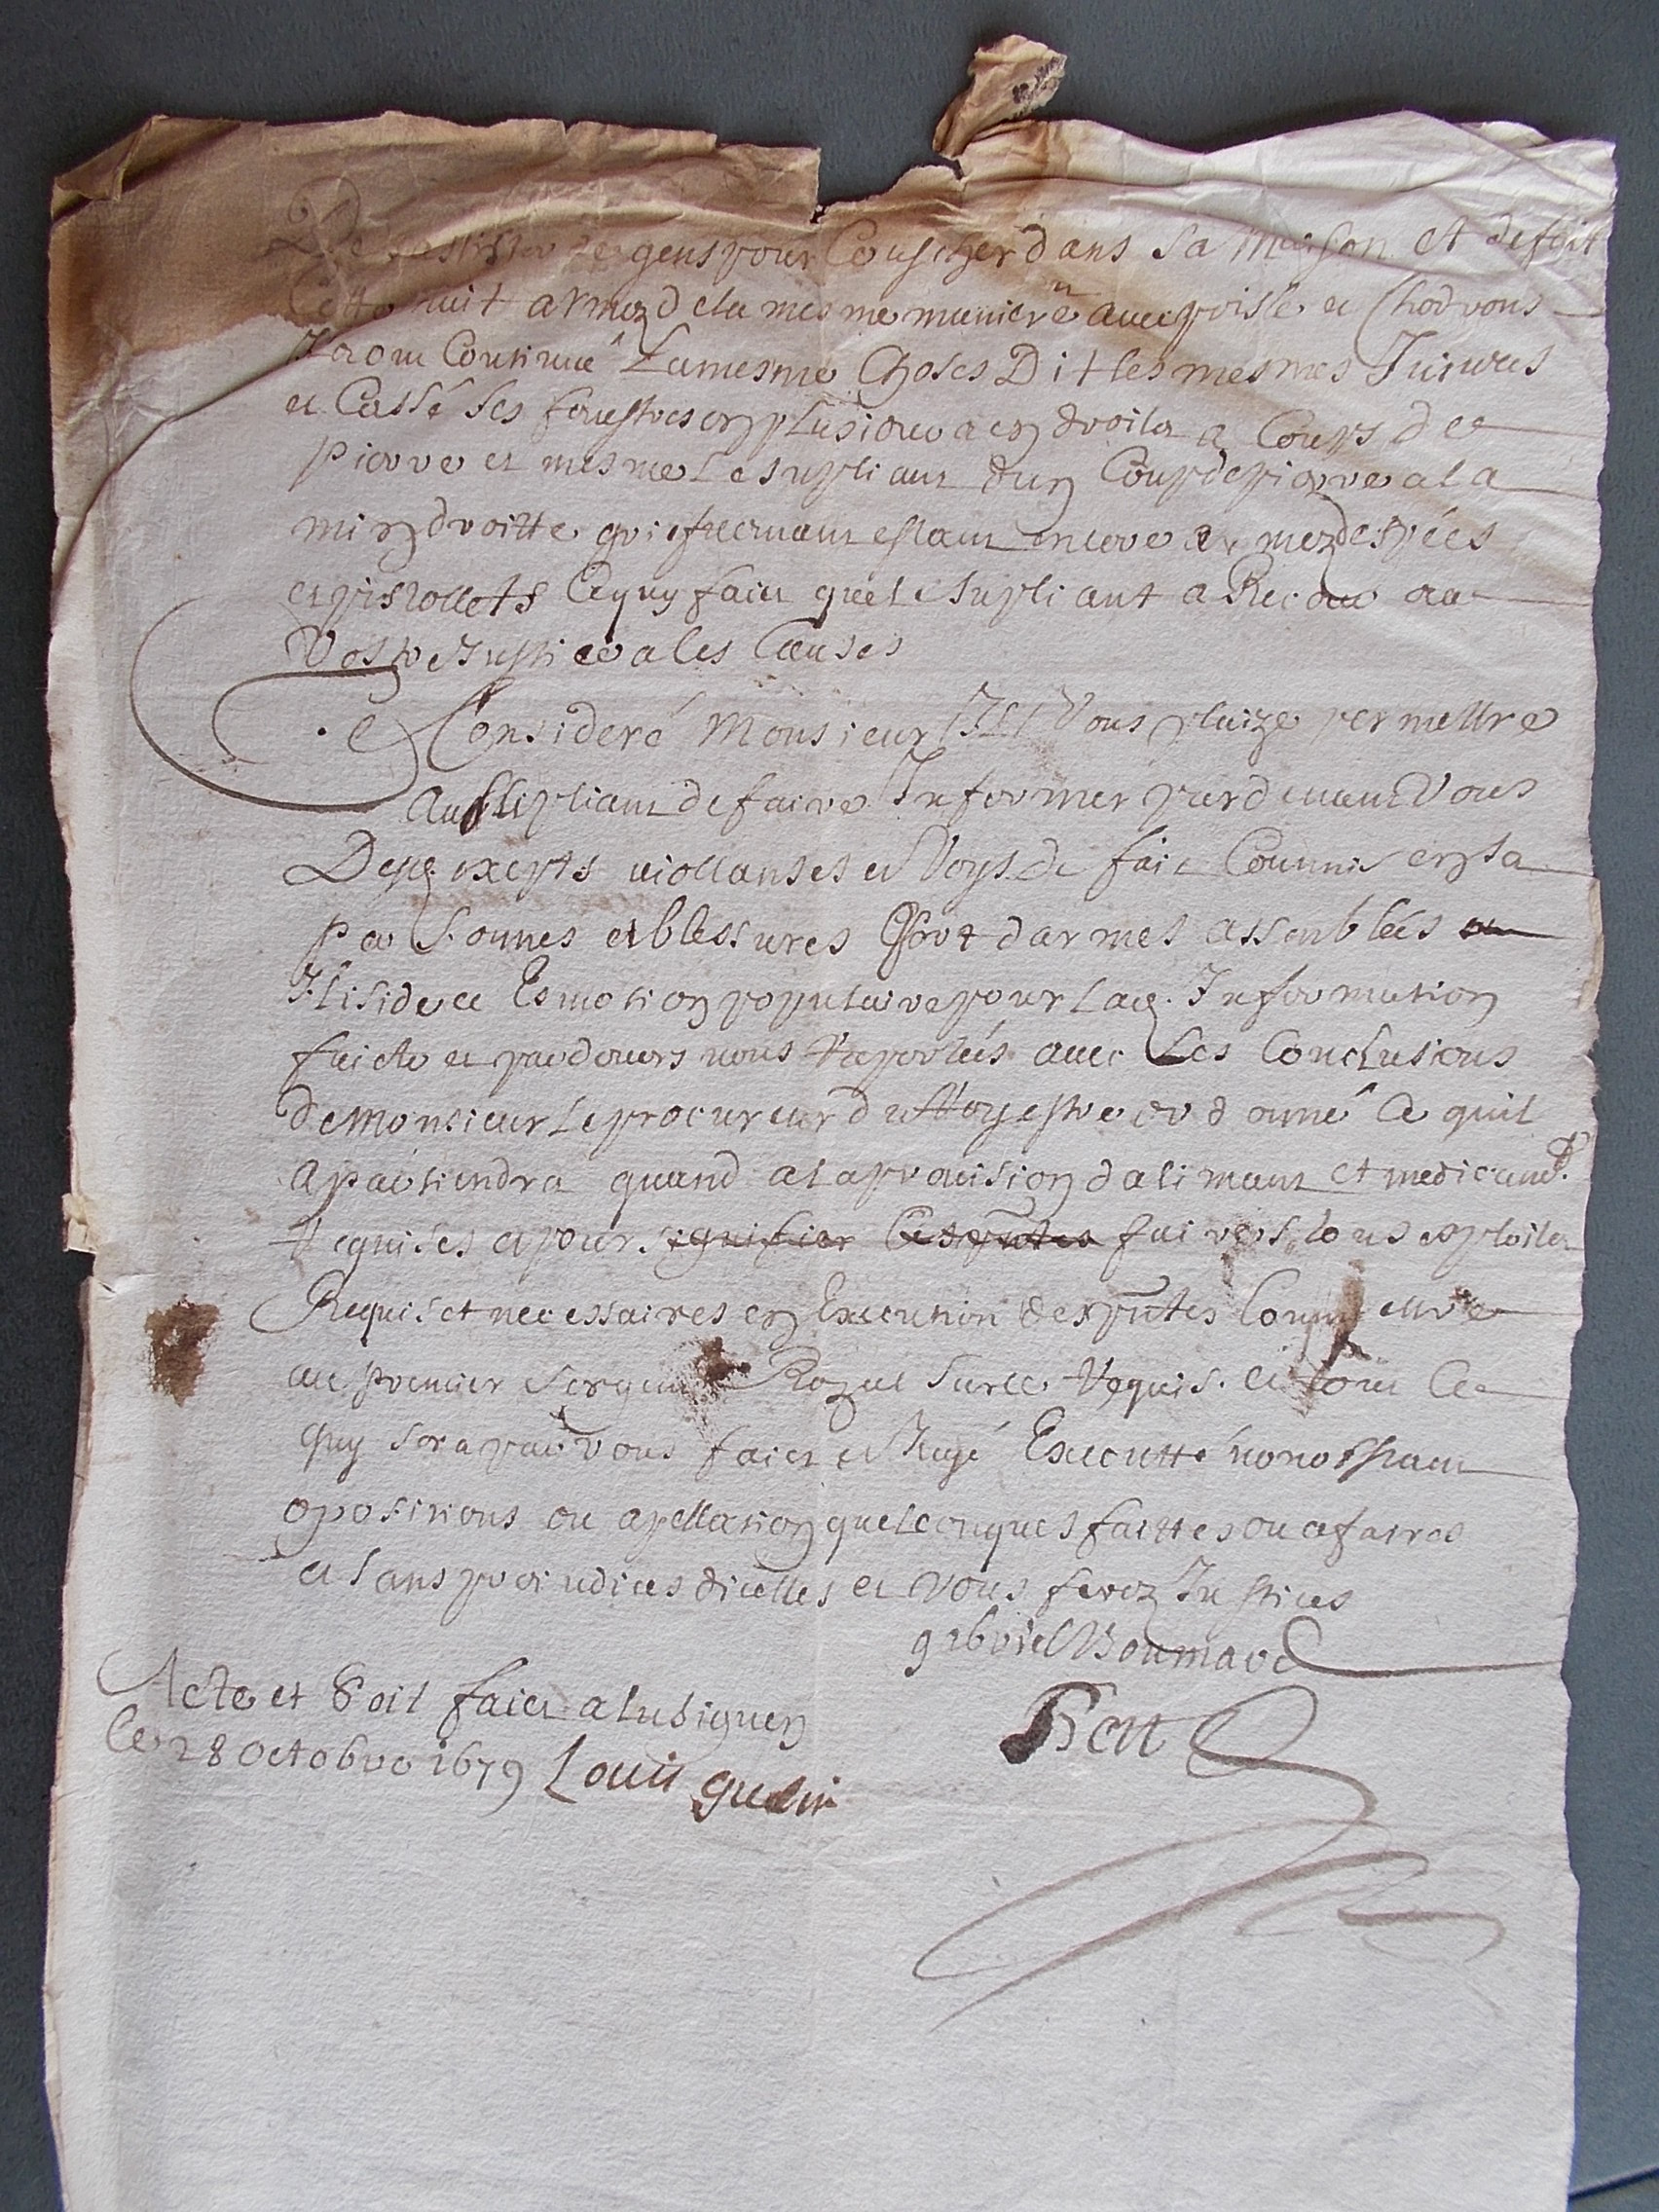 gens pour Couscher dans Sa Maison et de fait
Cette nuit armez de la mesme maniere avec poisle et Chodrons
Zeaont Continué La mesme Choses Dit les mesmes Iniures
et Cassé Ses fenestres en plusieurs endroits a Coups de
pierre et mesme Le supliant dun Coup de pierre a la
min droitte qui estoient estant encore armez despées
et pistollets Ce quy faict que le supliant a Recours a
Vostre Justice a les Causes
Ce Consideré Monsieur Il Vous plaize permettre
au supliant de faire Informer pardevant Vous
Desd. exepts viollanses et Voys de faict Commis en sa
personnes et blessures port darmes assemblées
Illiside et Esmotion populaire pour lad. Information
faicte et pardevers vous raportées avec Les Conclusions
de Monsieur le procureur du Roy estre ordonné Ce quil
apartiendra quand a la provision daliman et medicamt.
requises et pour signifier Ces pntes faires tous exploits
Requis et necessaires en Execution des pntes Commettre
au premier sergent Royal sur ce requis. et tout Ce
quy sera par vous faict et Jugé Executté nonostant
opositions ou apellation quelconques faittes ou afaires
et sans preiudices dicelles et vous ferez Justices
gabriel Boumard
Bert
Acte et Soit faict a lusignen
Ce 28 Octobre 1679 Louis guerin